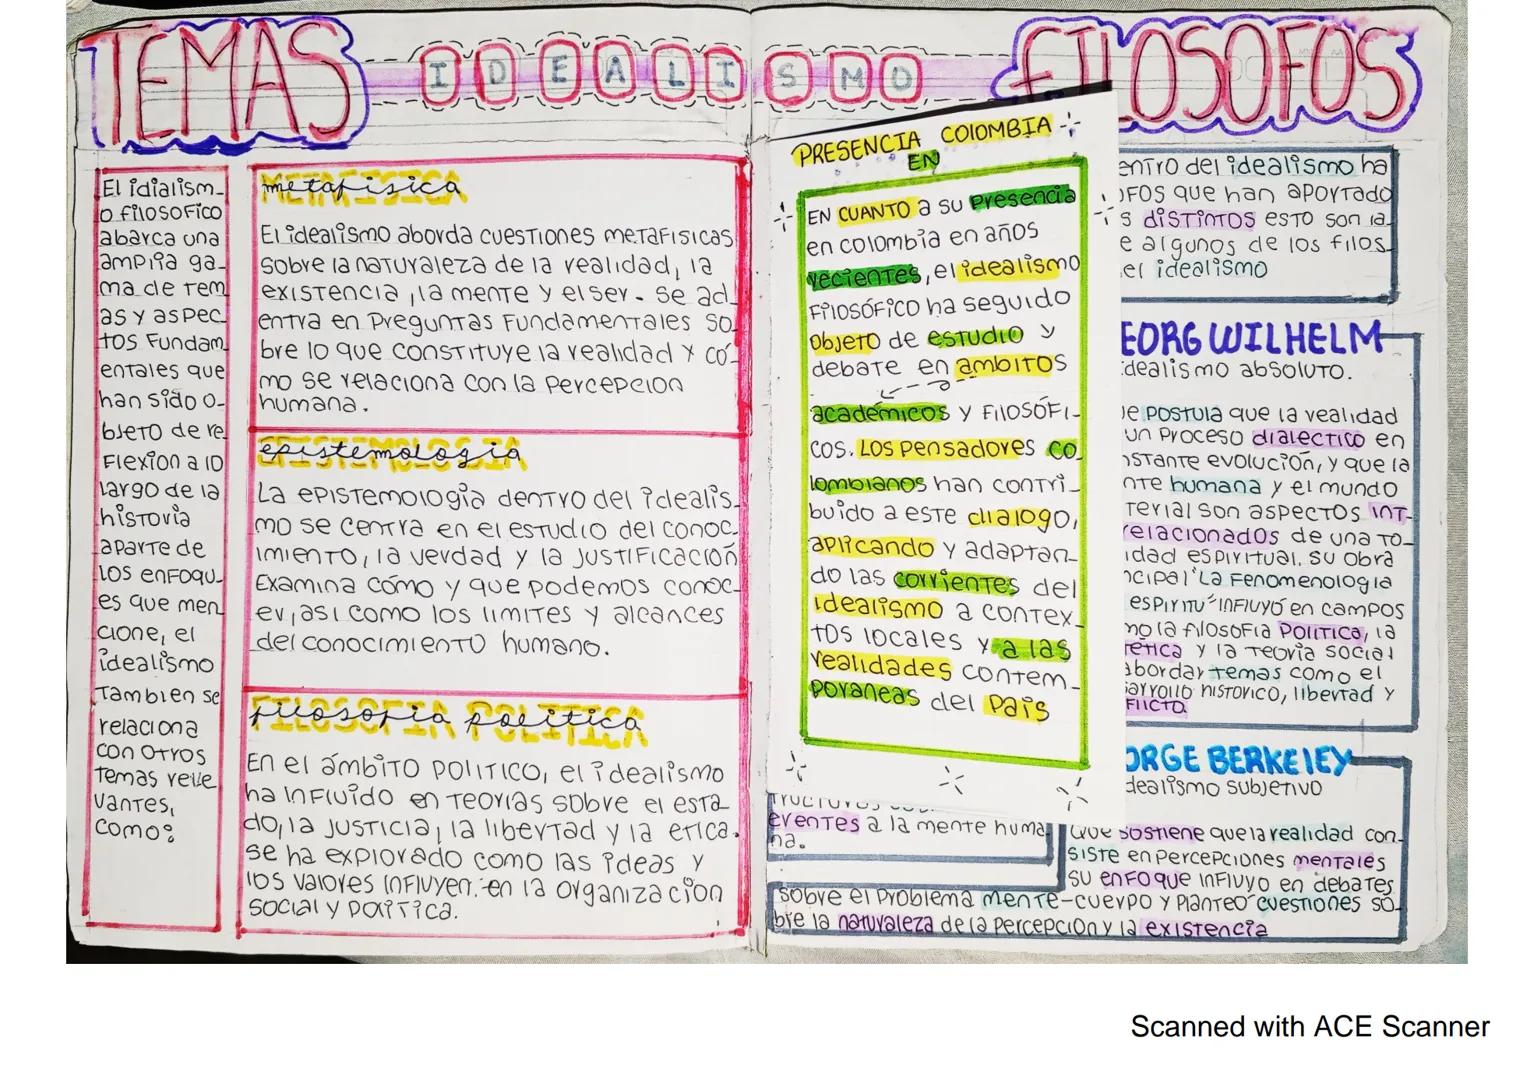 TEMAS
IDEALISMO
FILOSOFOS
El idialism-
o filosofico
abarca una
amplia ga-
ma de tem
as y aspec-
tos Fundam-
entales que
han sido o-
bjeto de re-
Flexion a lo
largo de la
historia
aparte de
los enfoqu-
es que men
cione, el
idealismo
Tambien se
relaciona
con otros
temas rele
vantes,
como:
metafisica
El idealismo aborda cuestiones metafisicas
sobre la naturaleza de la realidad, la
existencia, la mente y el ser. se ad
entra en Preguntas Fundamentales so-
bre lo que constituye la realidad y có-
mo se relaciona con la percepcion
humana.
epistemologia
La epistemología dentro del idealis-
mo se centra en el estudio del conoc-
imiento, la verdad y la justificación
Examina cómo y que podemos conoc-
er, asi como los limites y alcances
del conocimiento humano.
filosofia politica
En el ámbito politico, el idealismo
ha influido en teorías sobre el esta-
do, la justicia, la libertad y la etica.
se ha explorado como las ideas y
los valores influyen en la organización
social y política.
PRESENCIA COLOMBIA
EN
EN CUANTO a su Presencia
en colombia en años
recientes, el idealismo
filosófico ha seguido
objeto de estudio y
debate en ambitos
académicos y filosófi-
cos. Los pensadores co
lombianos han contri-
buido a este dialogo,
aplicando y adaptan-
do las corrientes del
idealismo a contex-
tos locales y a las
realidades contem-
poraneas del País
entro del idealismo ha
ofos que han aportado
s distintos esto son la
e algunos de los filos-
el idealismo
EORG WILHELM
dealismo absoluto.
ue postula que la realidad
un proceso dialectico en
nstante evolución, y que la
nte humana y el mundo
terial son aspectos int-
relacionados de una to-
idad espiritual. su obra
ncipal "La Fenomenologia
espiritu" influyó en campos
mo la filosofia Politica, la
etica y la teoria social
abordar temas como el
sarrollo historico, libertad y
flicto
ORGE BERKELEY
dealismo subjetivo
erentes a la mente huma-
na.
que sostiene que la realidad con-
siste en percepciones mentales
su enfoque influyo en debates
sobre el problema mente-cuerpo y planteo cuestiones so-
bre la naturaleza de la percepcion y la existencia
Scanned with ACE Scanner